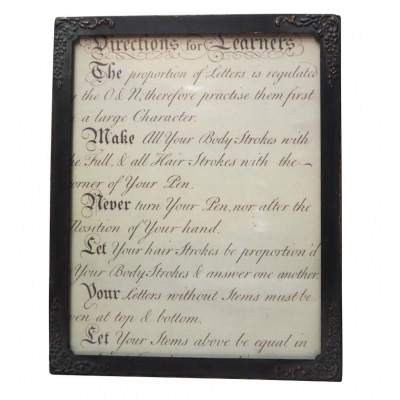 Directions for Learners
The proportion of Letters is regulated
the O & N; therefore practise them first
a large Character.
Make All Your Body Strokes with
he Full, & all Hair Strokes with the
orner of Your Pen.
Never turn Your Pen, nor alter the
Position of Your hand.
Let Your hair Strokes be proportion'd
Your Body-Strokes & answer one another.
Your Letters without Stems must be
ven at top & bottom.
Let Your Stems above be equal in